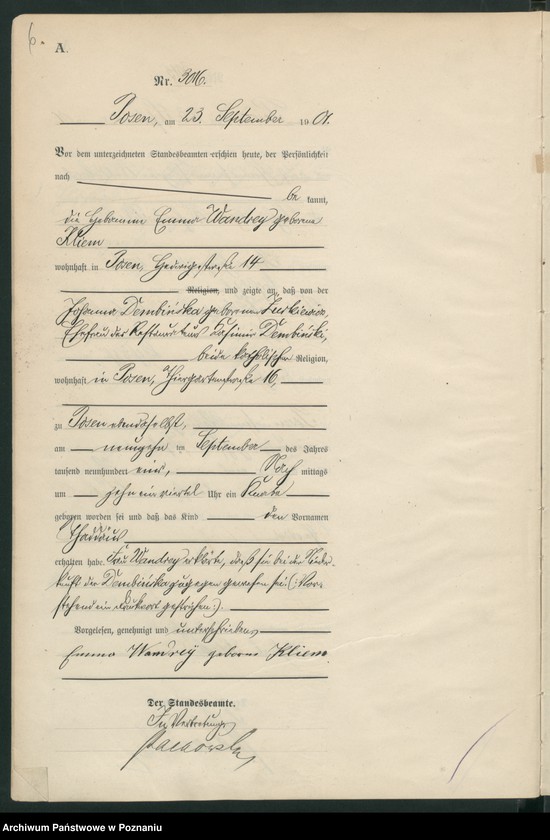 6.
A.
Nr. 3016.
Posen, am 23. September 1901.
Vor dem unterzeichneten Standesbeamten erschien heute, der Persönlichkeit
nach
be kannt,
die Hebamme Emma Wandrey geborene
Kliem
wohnhaft in Posen, Hedwigstraße 14
Religion, und zeigte an, daß von der
Johanna Dembińska geborene
Ehefrau des Restaurateurs Casimir Dembiński,
beide katholischer Religion,
wohnhaft in Posen, Thiergartenstraße 16,
zu Posen ebendaselbst,
am neunzehn ten September des Jahres
tausend neunhundert eins, Nach mittags
um zehn ein viertel Uhr ein Knabe
geboren worden sei und daß das Kind den Vornamen
Thaddäus
erhalten habe. Frau Wandrey erklärte, daß sie bei der Nieder-
kunft der Dembińska zugegen gewesen sei. (: Vor-
stehend ein Druckwort gestrichen :)
Vorgelesen, genehmigt und unterschrieben
Emma Wandrey geborene Kliem.
Der Standesbeamte.
In Vertretung
Archiwum Państwowe w Poznaniu